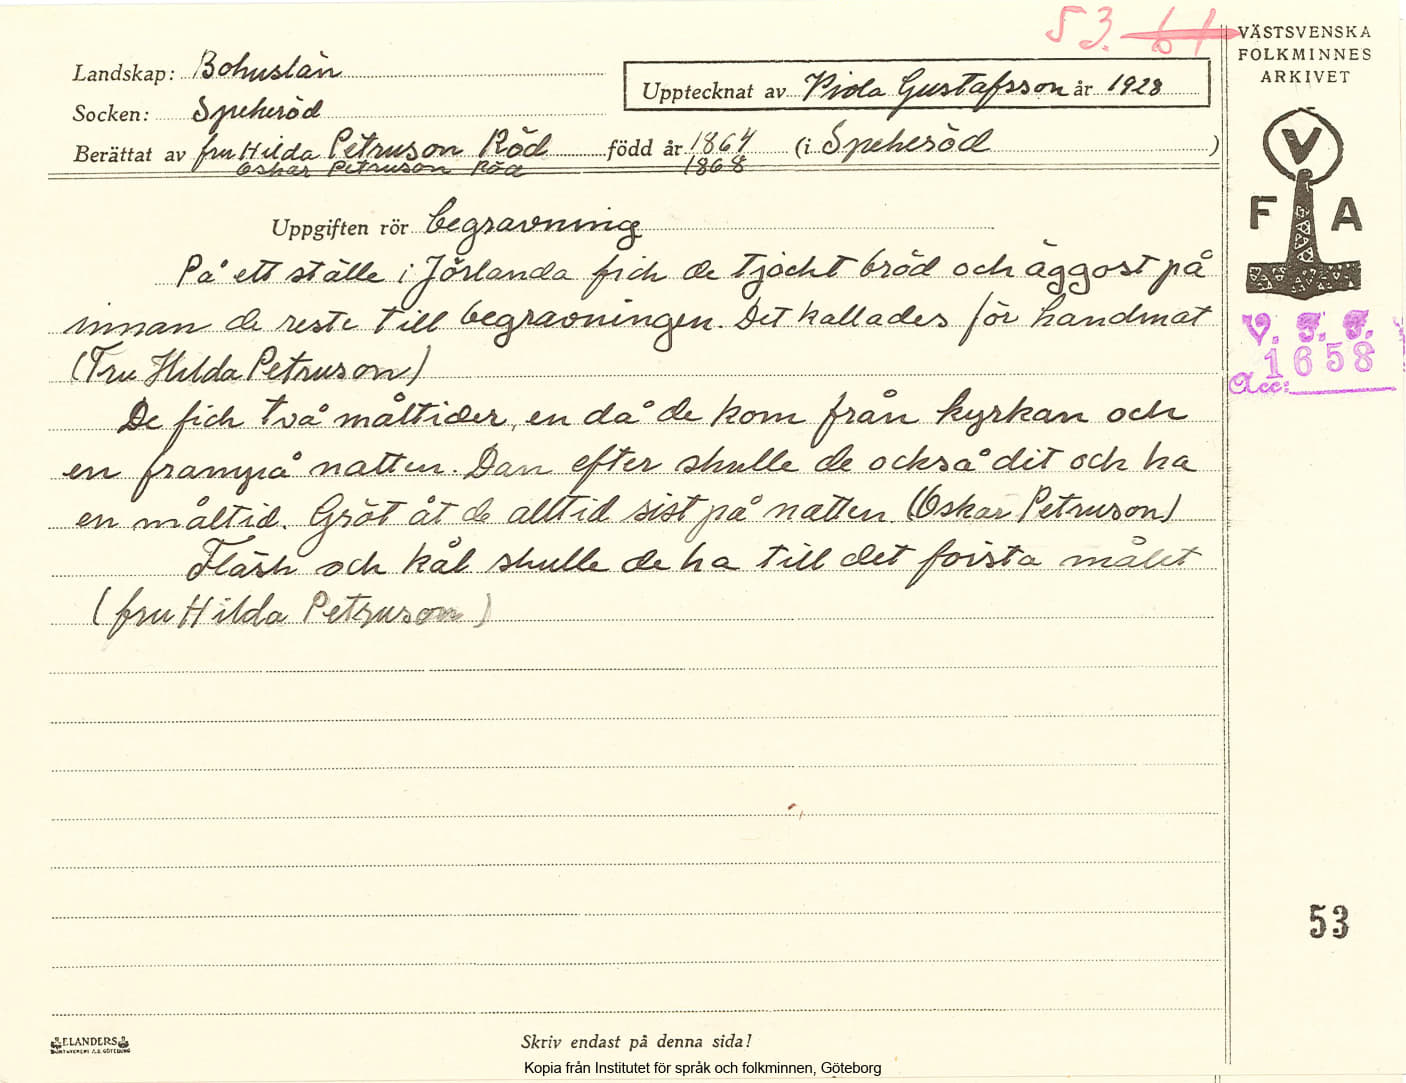 53. 61
VÄSTSVENSKA
FOLKMINNES
ARKIVET
Landskap: Bohuslän
Upptecknat av Vida Gustafsson år 1928
Socken: Spekeröd
Berättat av fru Hilda Petruson Röd född år 1864 (i Spekeröd)
Oskar Petruson Röd 1868
V
F A
Uppgiften rör begravning
På ett ställe i Jörlanda fick de tjockt bröd och äggost på
innan de reste till begravningen. Det kallades för handmat
(Fru Hilda Petruson)
De fick två måltider, en då de kom från kyrkan och
en frampå natten. Dan efter skulle de också dit och ha
en måltid. Gröt åt de alltid sist på natten. (Oskar Petruson)
Fläsk och kål skulle de ha till det första målet
(fru Hilda Petruson)
V. F. F.
1658
Acc:
53
ELANDERS
Skriv endast på denna sida!
Kopia från Institutet för språk och folkminnen, Göteborg